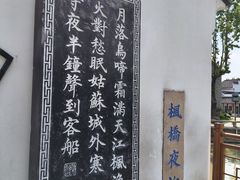 楓橋夜泊
月落烏啼霜滿天江楓漁
火對愁眠姑蘇城外寒
寺夜半鐘聲到客船